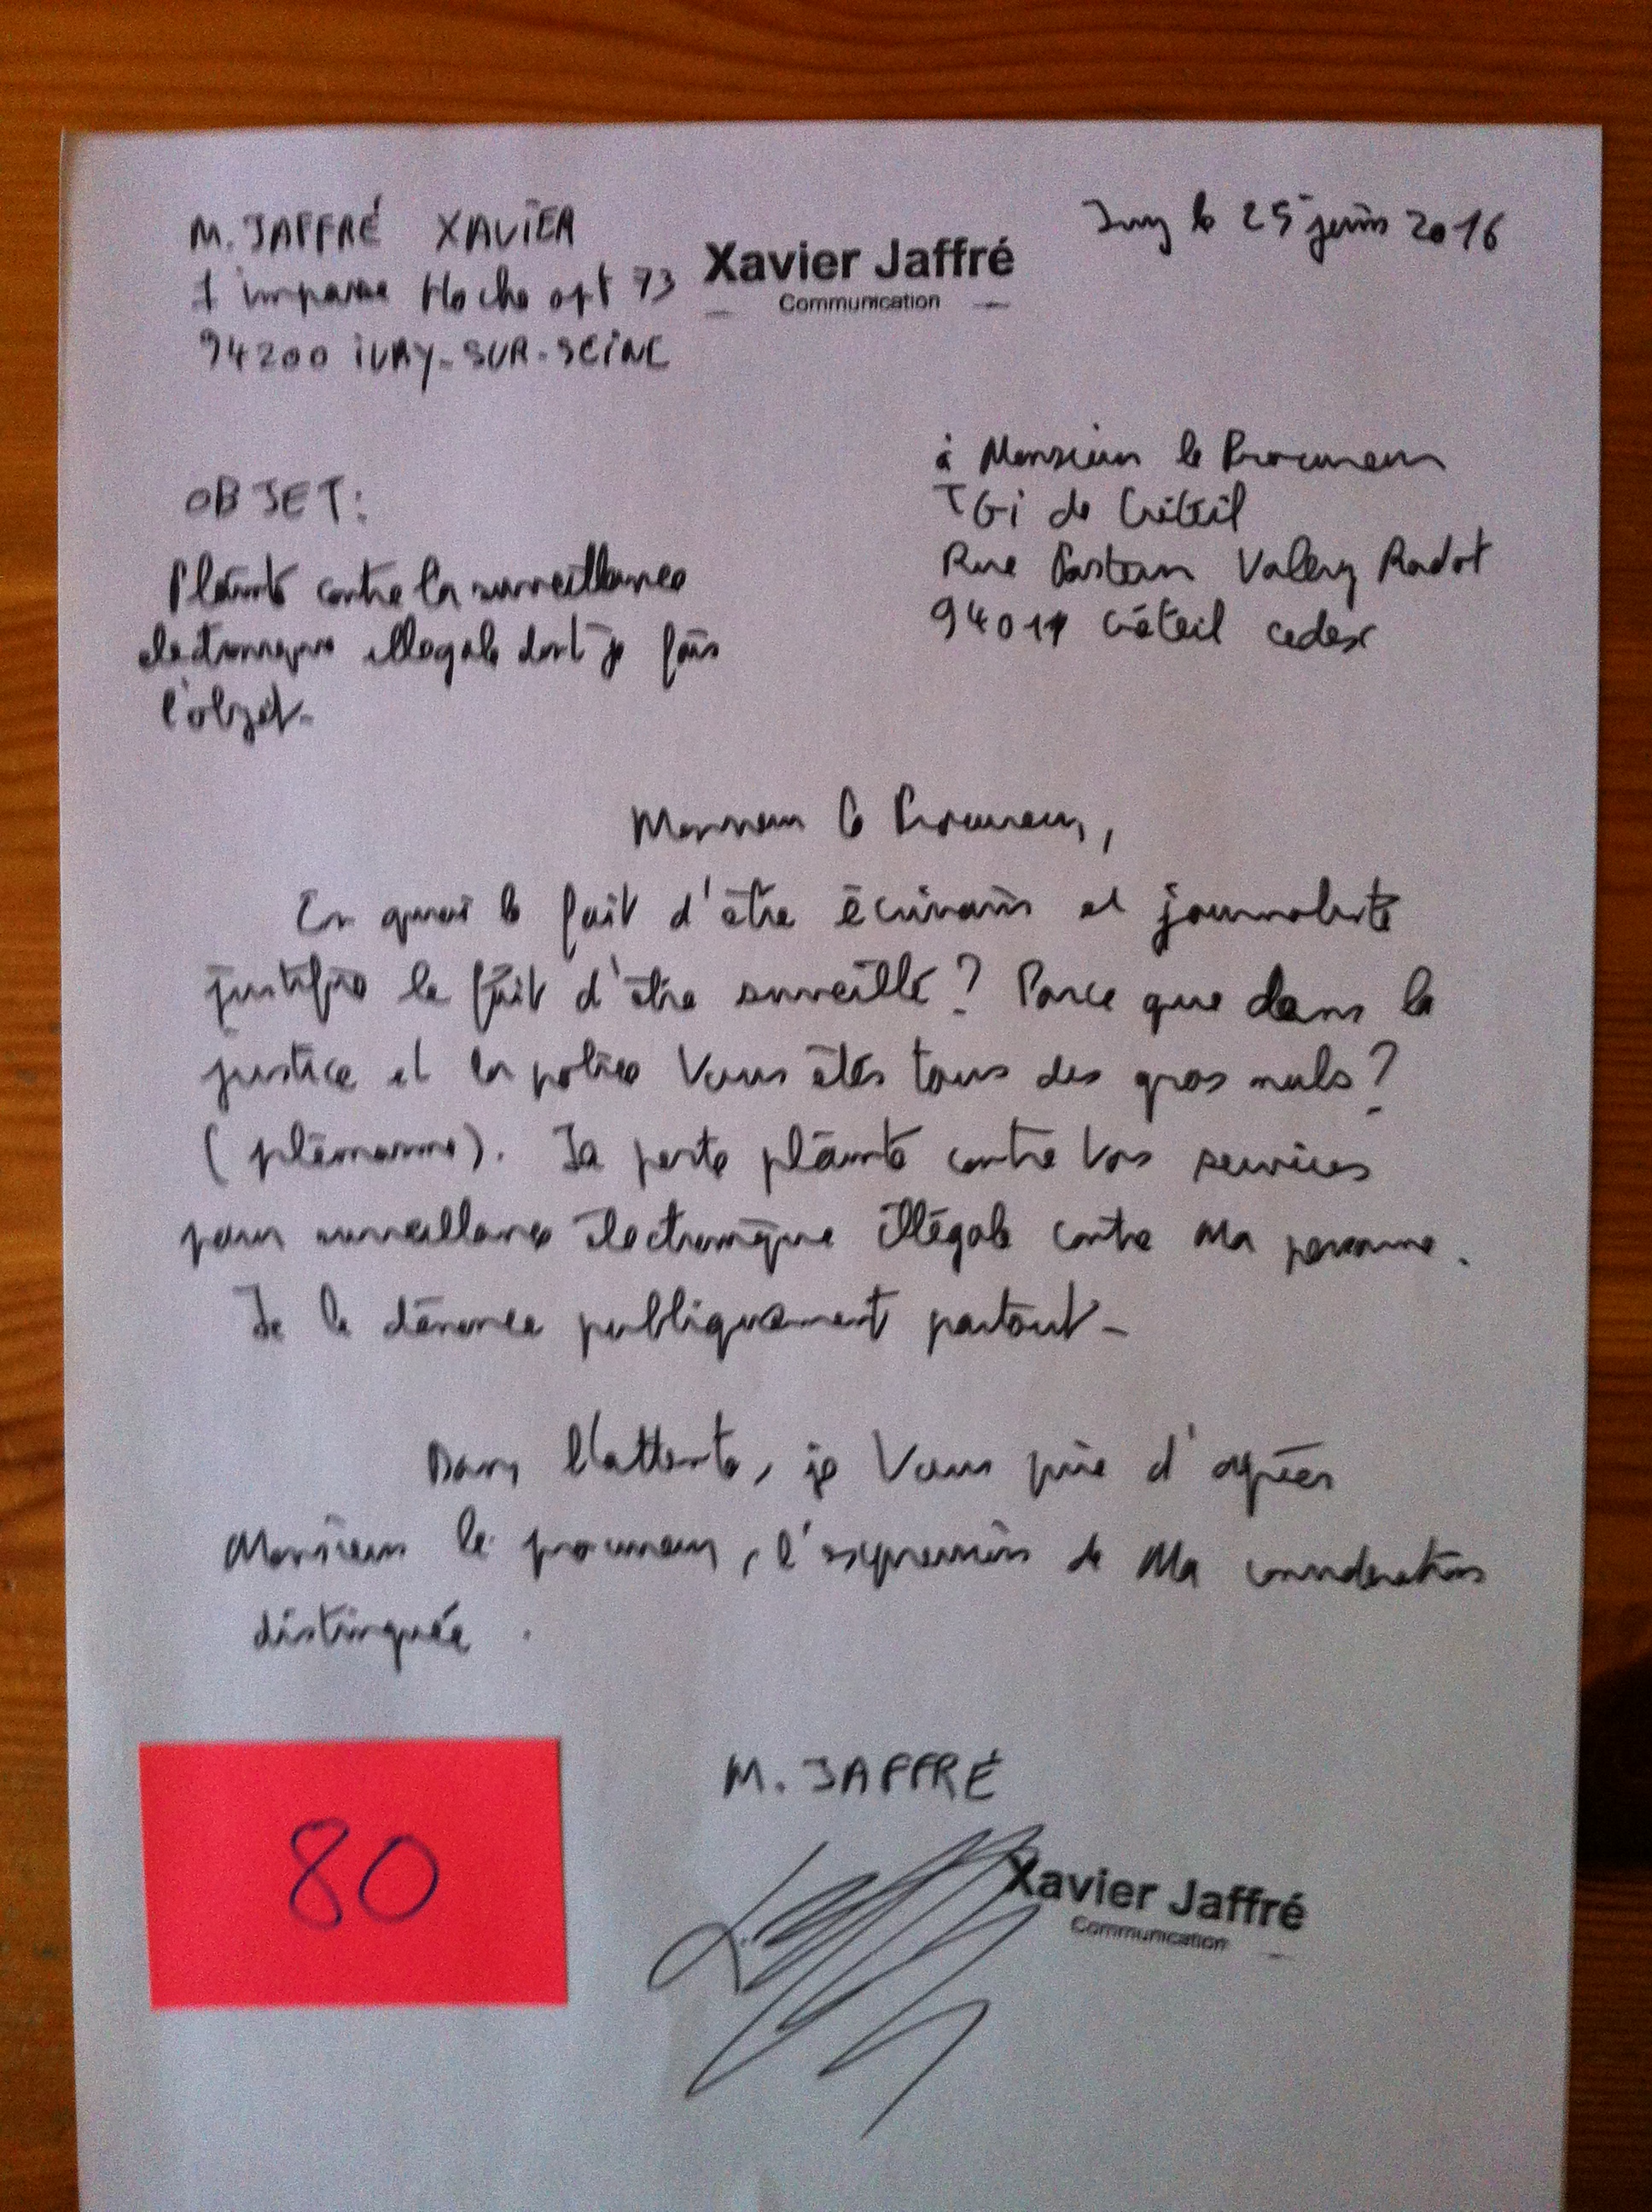 M. JAFFRÉ XAVIER
1 impasse Hoche apt 73
94200 IVRY-SUR-SEINE
Xavier Jaffré
Communication
Ivry le 25 juin 2016
à Monsieur le Procureur
TGi de Créteil
Rue Pasteur Valery Radot
94011 Créteil cedex
OBJET:
Plainte contre la surveillance
electronique illegale dont je fais
l'objet.
Monsieur le Procureur,
En quoi le fait d'être écrivain et journaliste
justifie le fait d'être surveillé? Parce que dans la
justice et la police Vous êtes tous des gros nuls?
(pléonasme). Je porte plainte contre Vos services
pour surveillance électronique illégale contre Ma personne.
Je le dénonce publiquement partout-
Dans l'attente, je Vous prie d'agréer
Monsieur le procureur, l'expression de Ma considération
distinguée.
M. JAFFRÉ
Xavier Jaffré
Communication
80